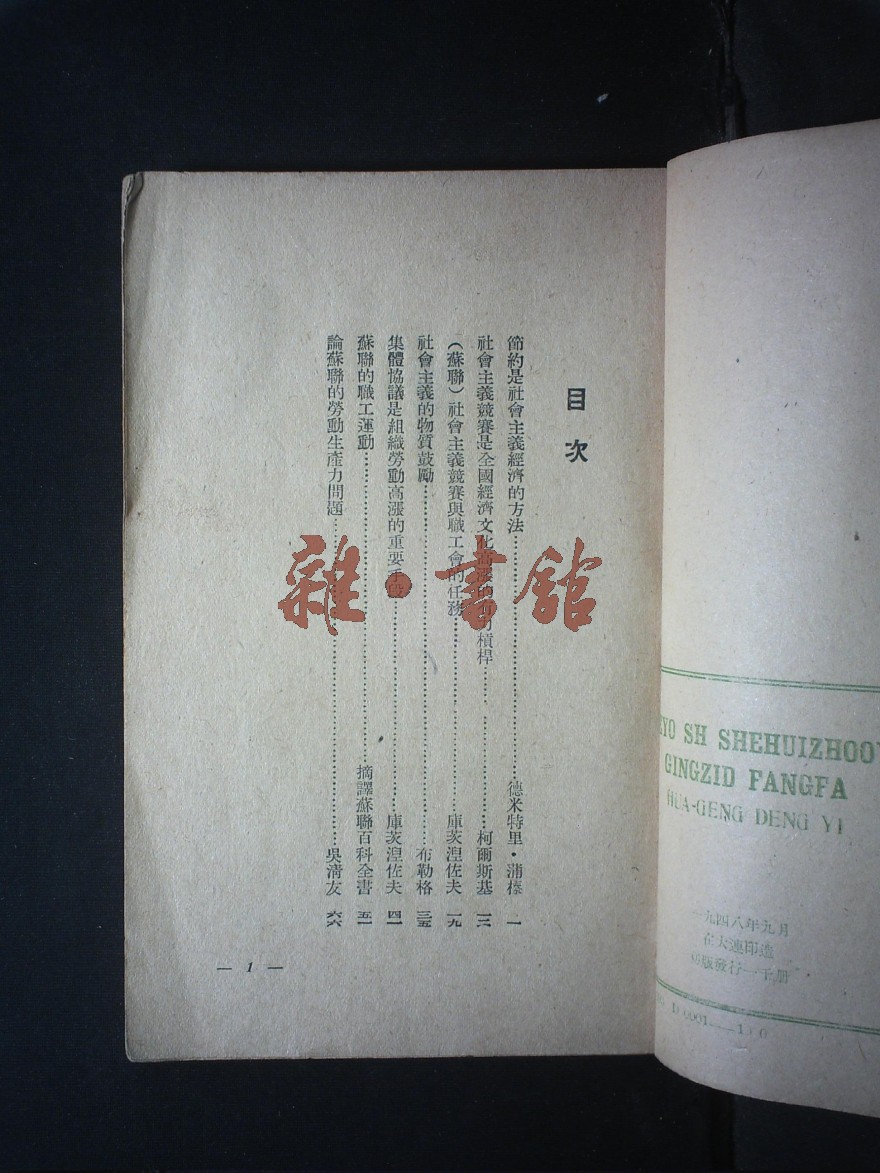 目次
節約是社會主義經濟的方法……德米特里·蒲 一
社會主義競賽是全國經濟文化高漲的 槓桿……柯爾斯基 一三
（蘇聯）社會主義競賽與職工會的任務……庫茨湼佐夫 一九
社會主義的物質鼓勵……布勒格 三五
集體協議是組織勞動高漲的重要手段……庫茨湼佐夫 四一
蘇聯的職工運動……摘譯蘇聯百科全書 五一
論蘇聯的勞動生產力問題……吳清友 六六
— 1 —
雜·書館
YO SH SHEHUIZHOO
GINGZID FANGFA
HUA-GENG DENG YI
一九四八年九月
在大連印造
版發行一千册